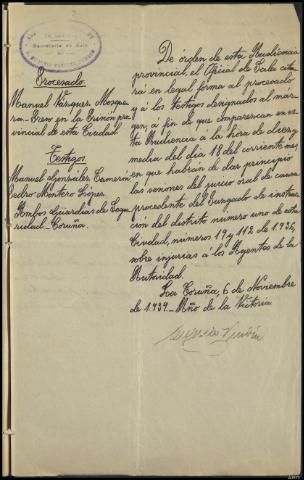 Secretaría de Sala
Procesado
Manuel Vazquez Mosque-
ra.- Preso en la Prisión pro-
vincial de esta Ciudad
Testigos
Manuel Gonzalez Camerón
Pedro Montero Lopez
Ambos Guardias de Segu-
ridad.- Coruña.
De orden de esta Audiencia
provincial, el Oficial de Sala cita-
rá en legal forma al procesado
y á los testigos designados al mar-
gen, á fin de que comparezcan en es-
ta Audiencia á la hora de diez y
media del dia 18 del corriente mes,
en que habrán de dar principio
las sesiones del juicio oral de causa
procedente del Juzgado de instruc-
ción del distrito número uno de esta
Ciudad, números 19 y 112 de 1.936,
sobre injurias á los Agentes de la
Autoridad.
La Coruña, 6 de Noviembre
de 1.939.- Año de la Victoria